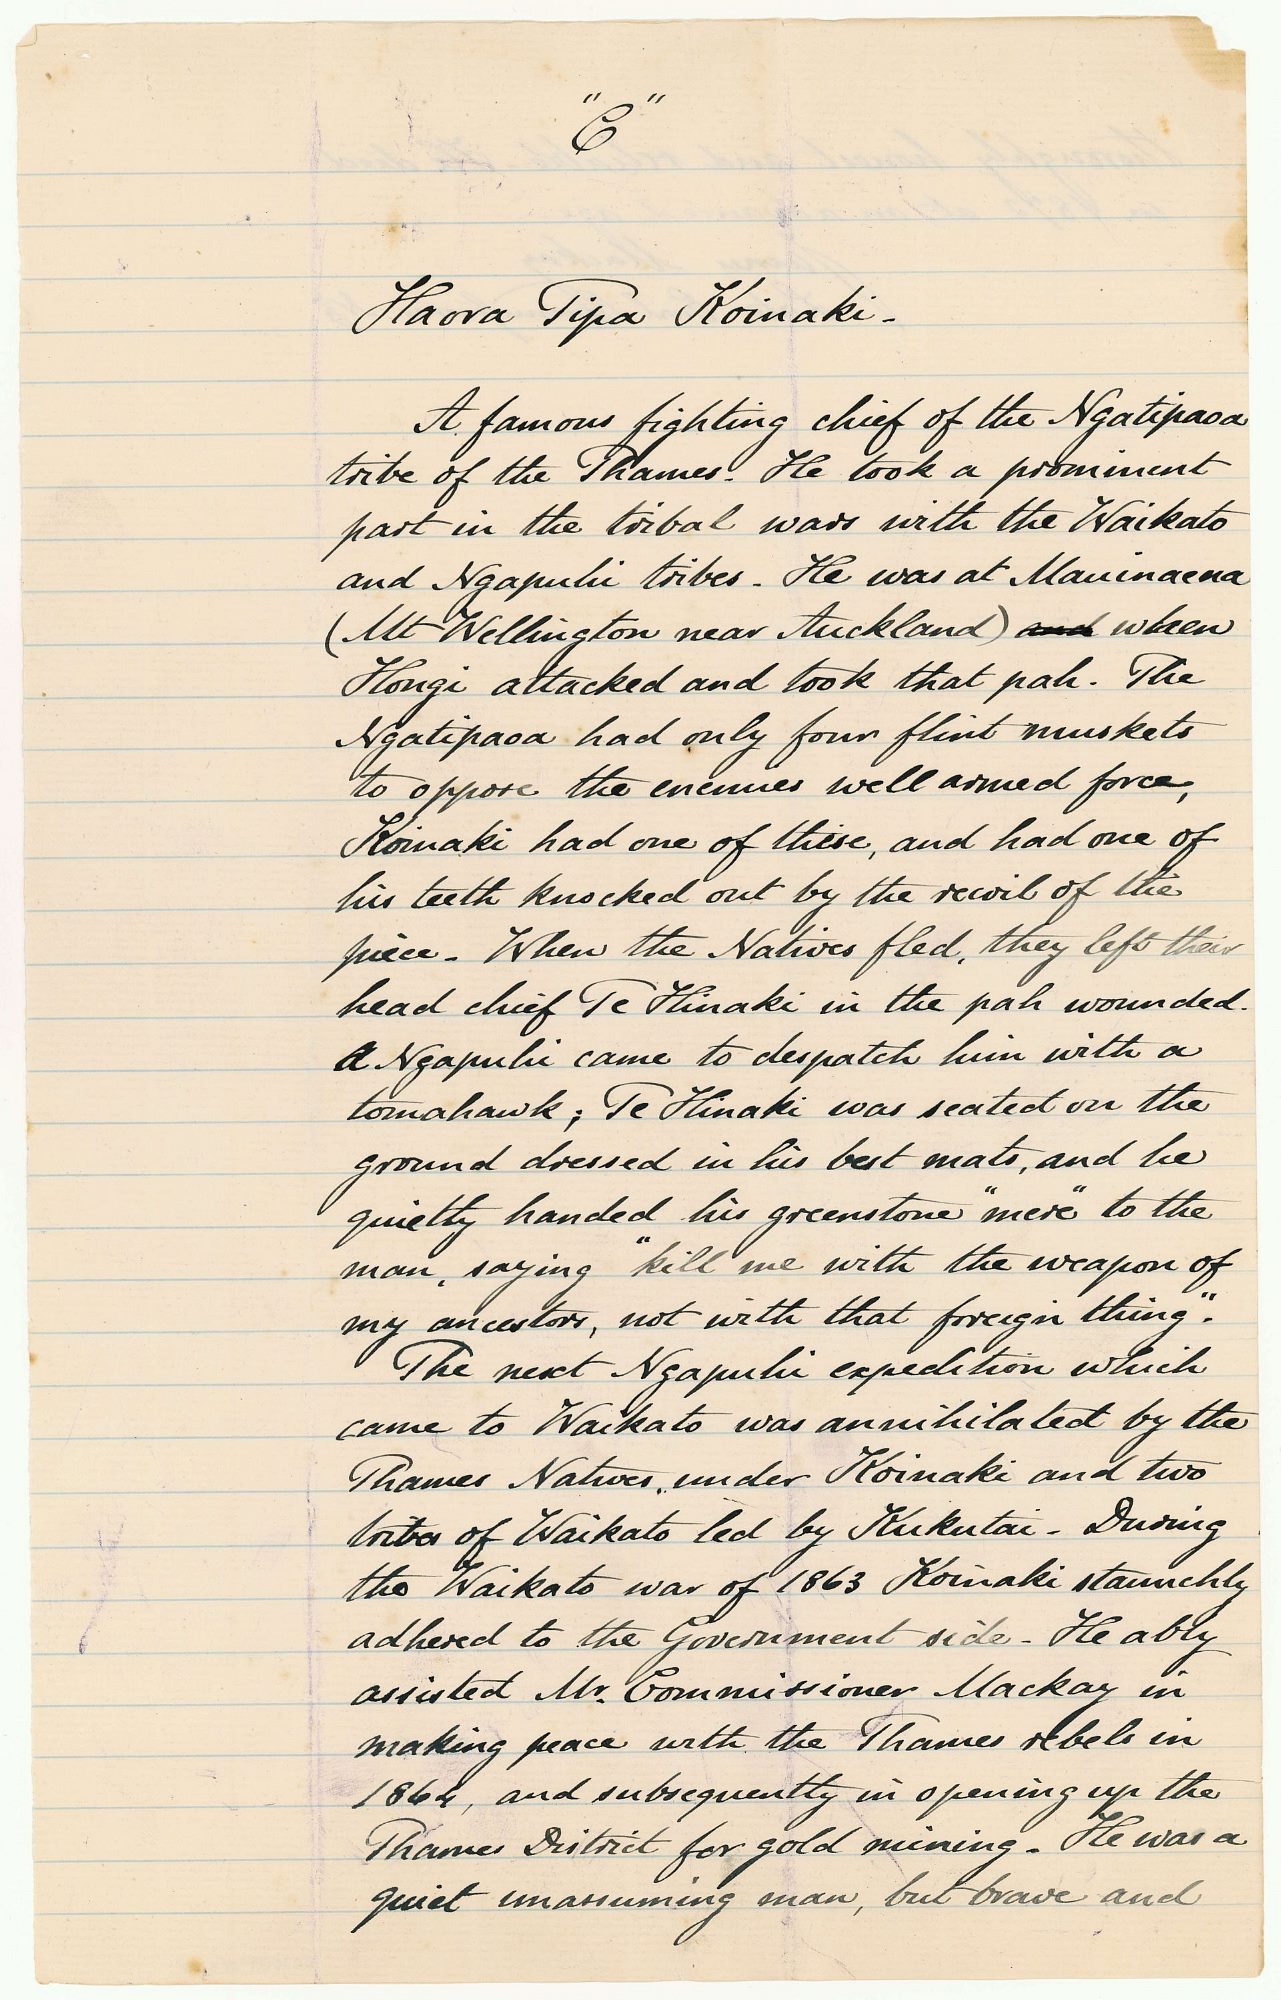 "C"
Haora Tipa Koinaki -
A famous fighting chief of the Ngatipaoa
tribe of the Thames. He took a prominent
part in the tribal wars with the Waikato
and Ngapuhi tribes - He was at Mauinaena
(Mt Wellington near Auckland) and when
Hongi attacked and took that pah. The
Ngatipaoa had only four flint muskets
to oppose the enemies well armed force,
Koinaki had one of these, and had one of
his teeth knocked out by the recoil of the
piece - When the Natives fled, they left their
head chief Te Hinaki in the pah wounded.
A Ngapuhi came to despatch him with a
tomahawk; Te Hinaki was seated on the
ground dressed in his best mats, and he
quietly handed his greenstone "mere" to the
man, saying "kill me with the weapon of
my ancestors, not with that foreign thing".
The next Ngapuhi expedition which
came to Waikato was annihilated by the
Thames Natives, under Koinaki and two
tribes of Waikato led by Kukutai - During
the Waikato war of 1863 Koinaki staunchly
adhered to the Government side - He ably
assisted Mr. Commissioner Mackay in
making peace with the Thames rebels in
1864, and subsequently in opening up the
Thames District for gold mining - He was a
quiet unassuming man, but brave and